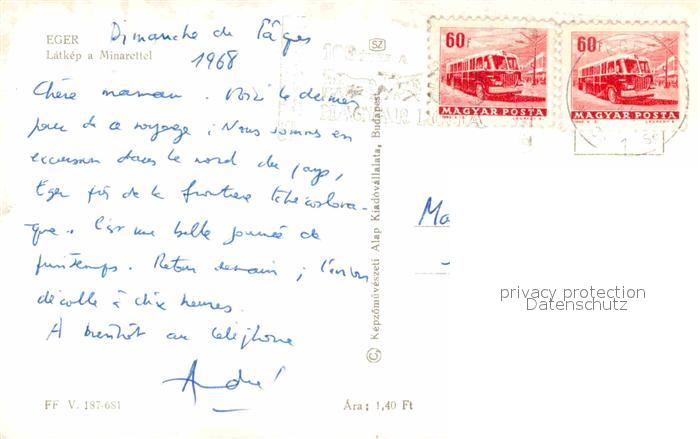 EGER
Látkép a Minarettel
Dimanche de Pâques
1968
Chère maman. Voici le dernier
jour de ce voyage ; Nous sommes en
excursion dans le nord du pays,
Eger près de la frontière tchécoslova-
que. C'est une belle journée de
printemps. Retour demain ; l'avion
décolle à dix heures.
A bientôt au téléphone
André
FF V. 187-681
Ára: 1,40 Ft
© Képzőművészeti Alap Kiadóvállalata, Budapest
SZ
60f
MAGYAR POSTA
60f
MAGYAR POSTA
MAGYAR POSTA
privacy protection
Datenschutz